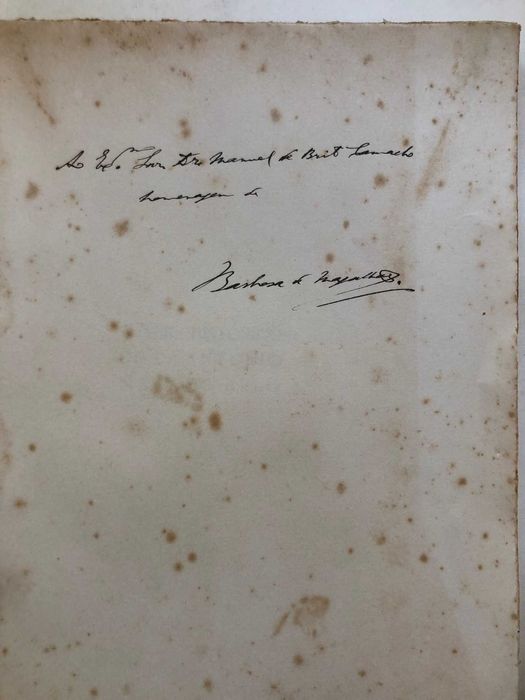 Ao Exmo. Snr. Dr. Manuel de Brito Camacho
homenagem de
Barbosa de Magalhães.